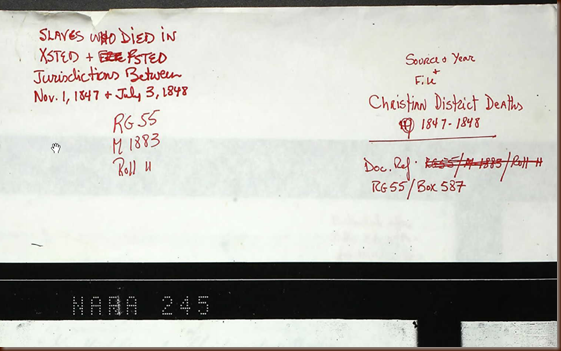 SLAVES WHO DIED IN
XSTED + FSTED
Jurisdictions Between
Nov. 1, 1847 + July 3, 1848
RG 55
M 1883
Roll 11
Source + Year
+
File
Christian District Deaths
1847-1848
Doc. Ref. RG55/M-1883/Roll 11
RG55/Box 587
NARA 245